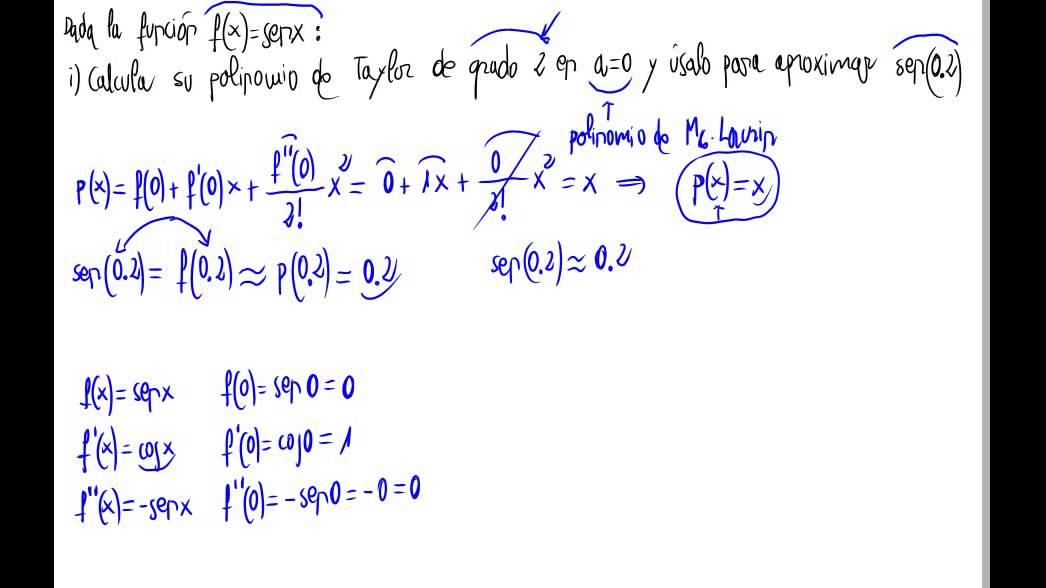 Dada la función f(x)=senx:
i) Calcula su polinomio de Taylor de grado 2 en a=0 y úsalo para aproximar sen(0.2)
polinomio de Mc. Laurin
p(x)=f(0)+f'(0)x+f''(0)/2! x²=0+1x+0/2! x²=x ⇒ p(x)=x
sen(0.2)=f(0.2)≈p(0.2)=0.2 sen(0.2)≈0.2
f(x)=senx f(0)=sen0=0
f'(x)=cosx f'(0)=cos0=1
f''(x)=-senx f''(0)=-sen0=-0=0